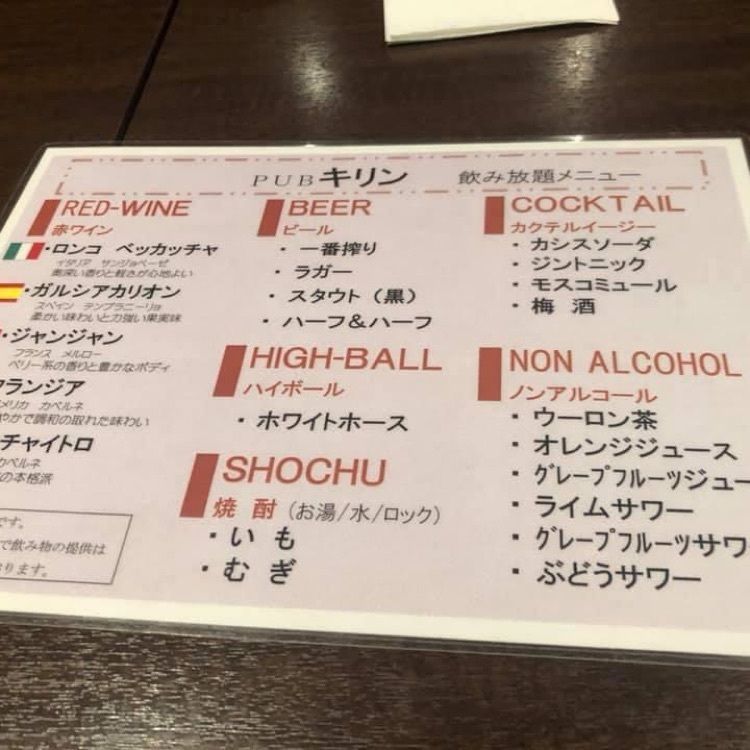 PUBキリン 飲み放題メニュー
RED-WINE
赤ワイン
・ロンコ ベッカッチャ
イタリア サンジョベーゼ
奥深い香りと軽さが心地よい
・ガルシアカリオン
スペイン テンプラニーリョ
柔かい味わいと力強い果実味
・ジャンジャン
フランス メルロー
ベリー系の香りと豊かなボディ
フランジア
メリカ カベルネ
やかで調和の取れた味わい
チャイトロ
カベルネ
の本格派
です。
で飲み物の提供は
おります。
BEER
ビール
・一番搾り
・ラガー
・スタウト（黒）
・ハーフ＆ハーフ
HIGH-BALL
ハイボール
・ホワイトホース
SHOCHU
焼酎（お湯/水/ロック）
・いも
・むぎ
COCKTAIL
カクテルイージー
・カシスソーダ
・ジントニック
・モスコミュール
・梅酒
NON ALCOHOL
ノンアルコール
・ウーロン茶
・オレンジジュース
・グレープフルーツジュー
・ライムサワー
・グレープフルーツサワ
・ぶどうサワー